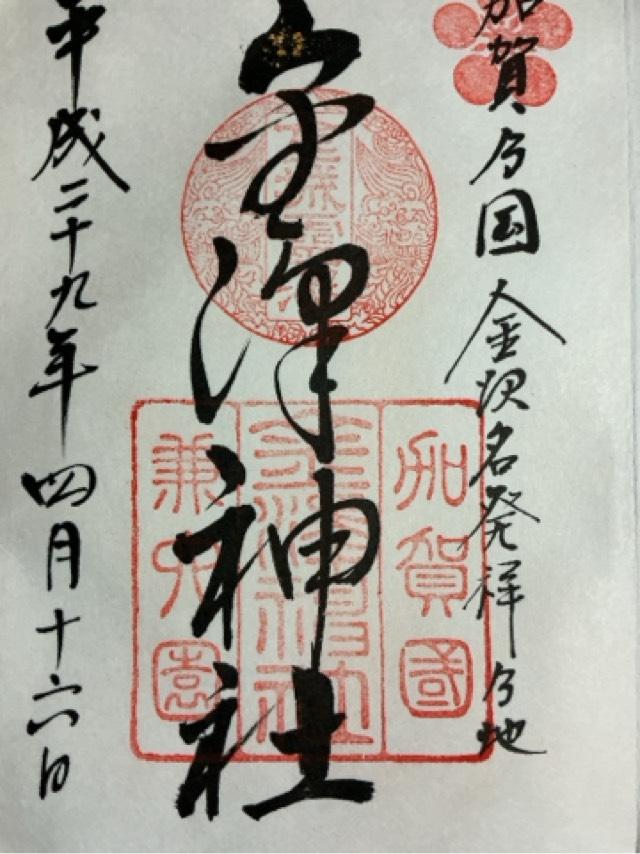 加賀乃国 金沢名発祥乃地
金澤神社
平成二十九年 四月十六日
加賀國
金澤神社
兼六園